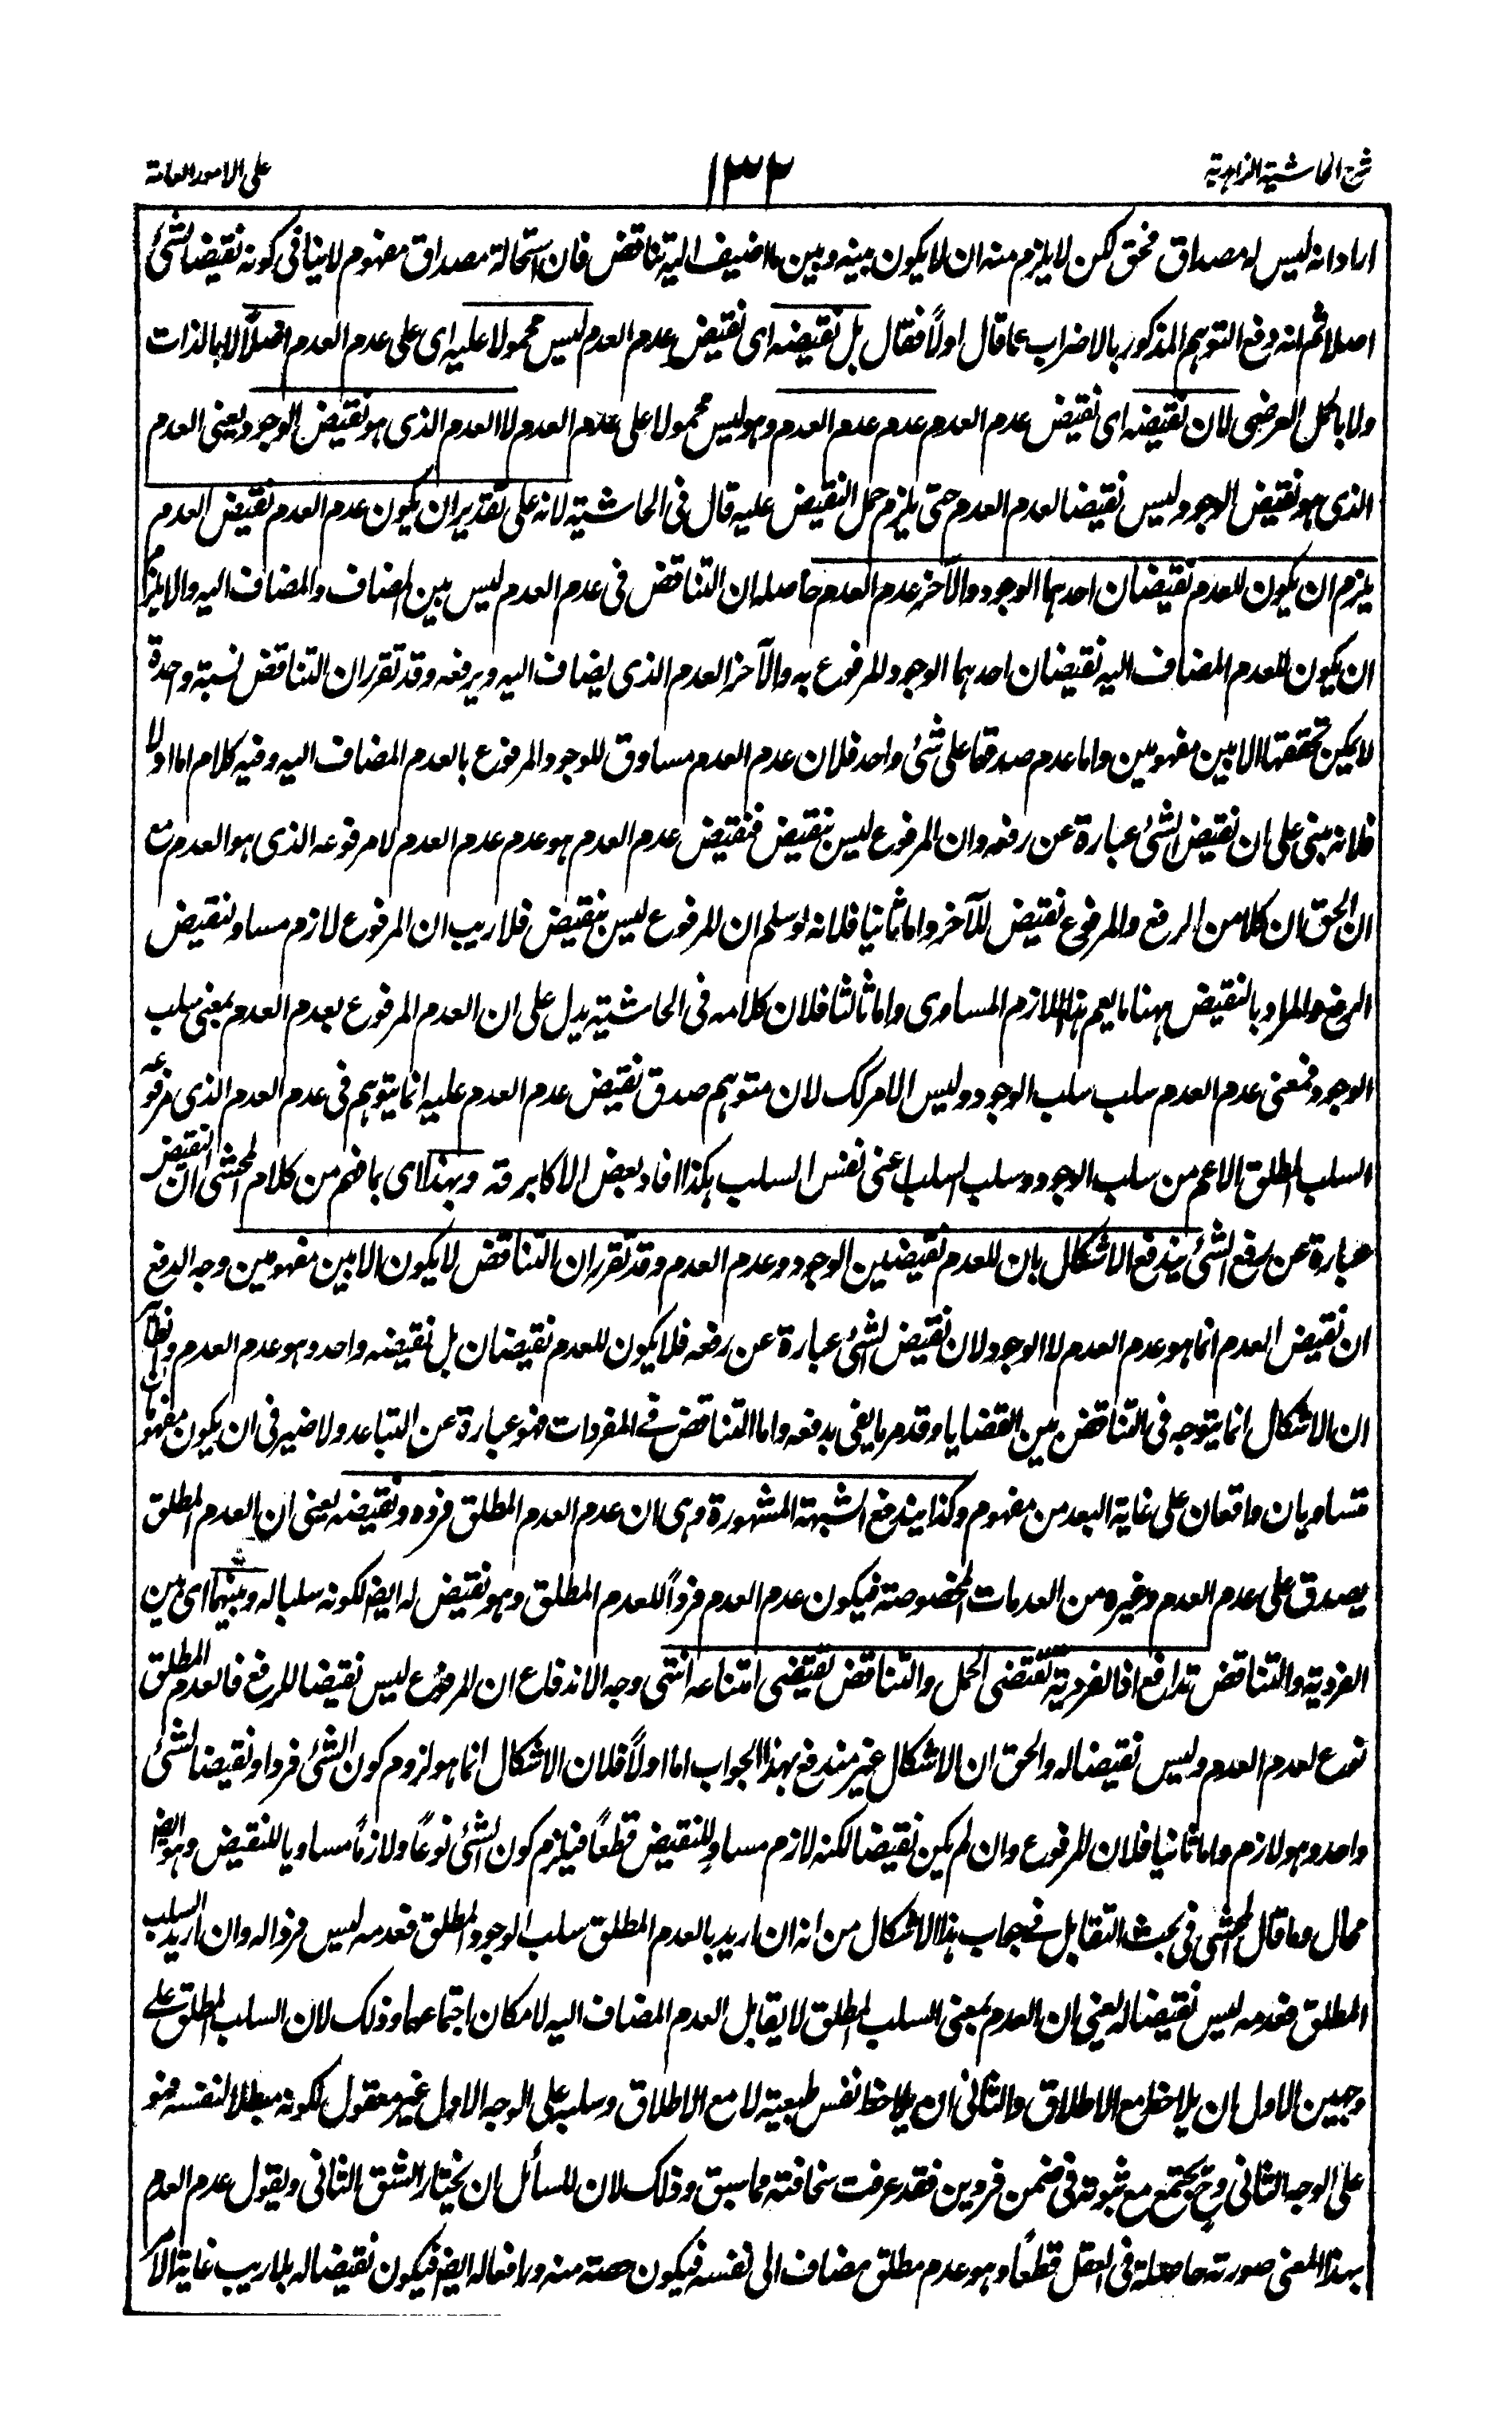 شرح الحاشية الزاهدية
١٣٢
على الامور العامة
اراد انه ليس له مصداق محقق لكن لا يلزم منه ان لا يكون بينه وبين ما اضيف اليه تناقض فان استحالة مصداق مفهوم لا ينافى كونه نقيضا لشئ
اصلا ثم انه دفع التوهم المذكور بالاضراب عما قال اولاً فقال بل نقيضه اى نقيض عدم العدم ليس محمولا عليه اى على عدم العدم اصلاً لا بالذات
ولا بالحمل العرضى لان نقيضه اى نقيض عدم العدم عدم عدم العدم وهو ليس محمولا على عدم العدم لا العدم الذى هو نقيض الوجود يعنى العدم
الذى هو نقيض الوجود ليس نقيضا لعدم العدم حتى يلزم حمل النقيض عليه قال فى الحاشية لانه على تقدير ان يكون عدم العدم نقيض العدم
يلزم ان يكون للعدم نقيضان احدهما الوجود والآخر عدم العدم حاصله ان التناقض فى عدم العدم ليس بين المضاف والمضاف اليه والا يلزم
ان يكون للعدم المضاف اليه نقيضان احدهما الوجود المرفوع به والآخر العدم الذى يضاف اليه ويرفعه وقد تقرر ان التناقض نسبة واحدة
لا يمكن تحققها الا بين مفهومين واما عدم صدقها على شئ واحد فلان عدم العدم مساوق للوجود المرفوع بالعدم المضاف اليه وفيه كلام اما اولا
فلانه مبنى على ان نقيض الشئ عبارة عن رفعه وان المرفوع ليس بنقيض فنقيض عدم العدم هو عدم عدم العدم لا مرفوعه الذى هو العدم مع
ان الحق ان كلا من الرفع والمرفوع نقيض للآخر واما ثانيا فلانه لو سلم ان المرفوع ليس بنقيض فلا ريب ان المرفوع لازم مساو لنقيض
الرفع والمراد بالنقيض ههنا ما يعم هذا اللازم المساوى واما ثالثا فلان كلامه فى الحاشية يدل على ان العدم المرفوع بعدم العدم بمعنى سلب
الوجود فمعنى عدم العدم سلب سلب الوجود وليس الامر كك لان متوهم صدق نقيض عدم العدم عليه انما يتوهم فى عدم العدم الذى مرفوعه
السلب المطلق الاعم من سلب الوجود وسلب السلب اعنى نفس السلب هكذا افاد بعض الاكابر قه وبهذا اى بما فهم من كلام المحشى ان النقيض
عبارة عن رفع الشئ يندفع الاشكال بان للعدم نقيضين الوجود وعدم العدم وقد تقرر ان التناقض لا يكون الا بين مفهومين وجه الدفع
ان نقيض العدم انما هو عدم العدم لا الوجود لان نقيض الشئ عبارة عن رفعه فلا يكون للعدم نقيضان بل نقيضه واحد وهو عدم العدم
ان الاشكال انما يتوجه فى التناقض بين القضايا وقد مر ما يفى بدفعه واما التناقض فى المفردات فهو عبارة عن التباعد ولا ضير فى ان يكون مفهومان
متساويان واقعان على غاية البعد من مفهوم وكذا يندفع الشبهة المشهورة وهى ان عدم العدم المطلق فرده ونقيضه يعنى ان العدم المطلق
يصدق على عدم العدم وغيره من العدمات المخصوصة فيكون عدم العدم فرداً للعدم المطلق وهو نقيض له ايضا لكونه سلبا له وبينهما اى بين
الفردية والتناقض تدافع اذ الفردية تقتضى الحمل والتناقض يقتضى امتناعه انتهى وجه الاندفاع ان المرفوع ليس نقيضا للرفع فالعدم المطلق
نوع لعدم العدم وليس نقيضا له والحق ان الاشكال غير مندفع بهذا الجواب اما اولاً فلان الاشكال انما هو لزوم كون الشئ فردا ونقيضا لشئ
واحد وهو لازم واما ثانيا فلان المرفوع وان لم يكن نقيضا لكنه لازم مساوٍ للنقيض قطعاً فيلزم كون الشئ نوعاً ولازماً مساويا للنقيض وهو ايضا
محال وما قال المحشى فى بحث التقابل فى جواب هذا الاشكال من انه ان اريد بالعدم المطلق سلب الوجود المطلق فعدمه ليس فردا له وان اريد السلب
المطلق فعدمه ليس نقيضا له يعنى ان العدم بمعنى السلب المطلق لا يقابل العدم المضاف اليه لامكان اجتماعهما وذلك لان السلب المطلق على
وجهين الاول ان يلاحظ مع الاطلاق والثانى ان يلاحظ نفس طبيعته لا مع الاطلاق وسلبه على الوجه الاول غير معقول لكونه مبطلا لنفسه فهو
على الوجه الثانى وح يجتمع مع ثبوته فى ضمن فردين فقد عرفت سخافته مما سبق وذلك لان للسائل ان يختار الشق الثانى ويقول عدم العدم
بهذا المعنى صورته حاصلة فى العقل قطعاً وهو عدم مطلق مضاف الى نفسه فيكون حصته منه ورافعا له ايضا فيكون نقيضا له بلا ريب غاية الامر